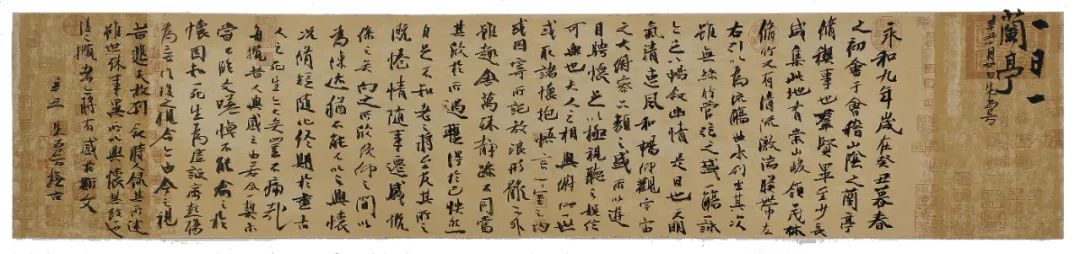 一日一
蘭亭
永和九年歲在癸丑暮春
之初會于會稽山陰之蘭亭
脩禊事也羣賢畢至少長
咸集此地有崇山峻領茂林
脩竹又有清流激湍暎帶左
右引以為流觴曲水列坐其次
雖無絲竹管弦之盛一觴一詠
亦足以暢敘幽情是日也天朗
氣清惠風和暢仰觀宇宙
之大俯察品類之盛所以遊
目騁懷足以極視聽之娛信
可樂也夫人之相與俯仰一世
或取諸懷抱悟言一室之內
或因寄所託放浪形骸之外
雖趣舍萬殊靜躁不同當
其欣於所遇暫得於己快然
自足不知老之將至及其所之
既惓情隨事遷感慨
係之矣向之所欣俛仰之間以
為陳迹猶不能不以之興懷
況脩短隨化終期於盡古
人云死生亦大矣豈不痛哉
每攬昔人興感之由若合一契未
嘗不臨文嗟悼不能喻之於
懷固知死生為虛誕齊彭殤
為妄作後之視今亦由今之視
昔悲夫故列敘時人錄其所述
雖世殊事異所以興懷其致一也
後之攬者亦將有感於斯文
辛丑